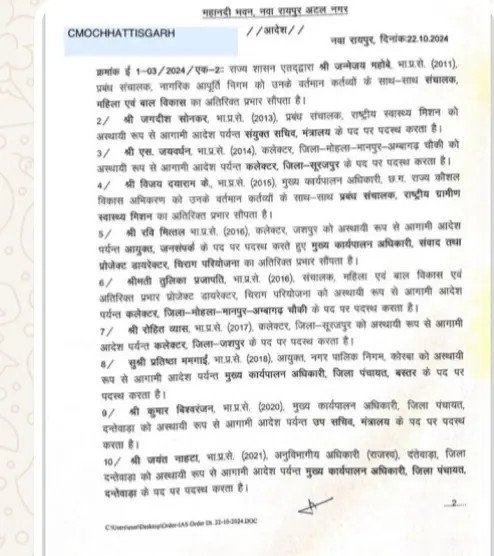 महानदी भवन, नवा रायपुर अटल नगर
CMOCHHATTISGARH
//आदेश//
नवा रायपुर, दिनांक:22.10.2024
क्रमांक ई 1-03/2024/एक-2:: राज्य शासन एतद्द्वारा श्री जन्मेजय महोबे, भा.प्र.से. (2011),
प्रबंध संचालक, नागरिक आपूर्ति निगम को उनके वर्तमान कर्तव्यों के साथ-साथ संचालक,
महिला एवं बाल विकास का अतिरिक्त प्रभार सौंपता है।
2/ श्री जगदीश सोनकर, भा.प्र.से. (2013), प्रबंध संचालक, राष्ट्रीय स्वास्थ्य मिशन को
अस्थायी रूप से आगामी आदेश पर्यन्त संयुक्त सचिव, मंत्रालय के पद पर पदस्थ करता है।
3/ श्री एस. जयवर्धन, भा.प्र.से. (2014), कलेक्टर, जिला-मोहला-मानपुर-अम्बागढ़ चौकी को
अस्थायी रूप से आगामी आदेश पर्यन्त कलेक्टर, जिला-सूरजपुर के पद पर पदस्थ करता है।
4/ श्री विजय दयाराम के, भा.प्र.से. (2015), मुख्य कार्यपालन अधिकारी, छ.ग. राज्य कौशल
विकास अभिकरण को उनके वर्तमान कर्तव्यों के साथ-साथ प्रबंध संचालक, राष्ट्रीय ग्रामीण
स्वास्थ्य मिशन का अतिरिक्त प्रभार सौंपता है।
5/ श्री रवि मित्तल भा.प्र.से. (2016), कलेक्टर, जशपुर को अस्थायी रूप से आगामी आदेश
पर्यन्त आयुक्त, जनसंपर्क के पद पर पदस्थ करते हुए मुख्य कार्यपालन अधिकारी, संवाद तथा
प्रोजेक्ट डायरेक्टर, चिराग परियोजना का अतिरिक्त प्रभार सौंपता है।
6/ श्रीमती तुलिका प्रजापति, भा.प्र.से. (2016), संचालक, महिला एवं बाल विकास एवं
अतिरिक्त प्रभार प्रोजेक्ट डायरेक्टर, चिराग परियोजना को अस्थायी रूप से आगामी आदेश
पर्यन्त कलेक्टर, जिला-मोहला-मानपुर-अम्बागढ़ चौकी के पद पर पदस्थ करता है।
7/ श्री रोहित व्यास, भा.प्र.से. (2017), कलेक्टर, जिला-सूरजपुर को अस्थायी रूप से आगामी
आदेश पर्यन्त कलेक्टर, जिला-जशपुर के पद पर पदस्थ करता है।
8/ सुश्री प्रतिष्ठा ममगाई, भा.प्र.से. (2018), आयुक्त, नगर पालिक निगम, कोरबा को अस्थायी
रूप से आगामी आदेश पर्यन्त मुख्य कार्यपालन अधिकारी, जिला पंचायत, बस्तर के पद पर
पदस्थ करता है।
9/ श्री कुमार बिश्वरंजन, भा.प्र.से. (2020), मुख्य कार्यपालन अधिकारी, जिला पंचायत,
दन्तेवाड़ा को अस्थायी रूप से आगामी आदेश पर्यन्त उप सचिव, मंत्रालय के पद पर पदस्थ
करता है।
10/ श्री जयंत नाहटा, भा.प्र.से. (2021), अनुविभागीय अधिकारी (राजस्व), दंतेवाड़ा, जिला
दन्तेवाड़ा को अस्थायी रूप से आगामी आदेश पर्यन्त मुख्य कार्यपालन अधिकारी, जिला पंचायत,
दन्तेवाड़ा के पद पर पदस्थ करता है।
..2...
C:\Users\user\Desktop\Order-IAS Order Dt. 22-10-2024.DOC